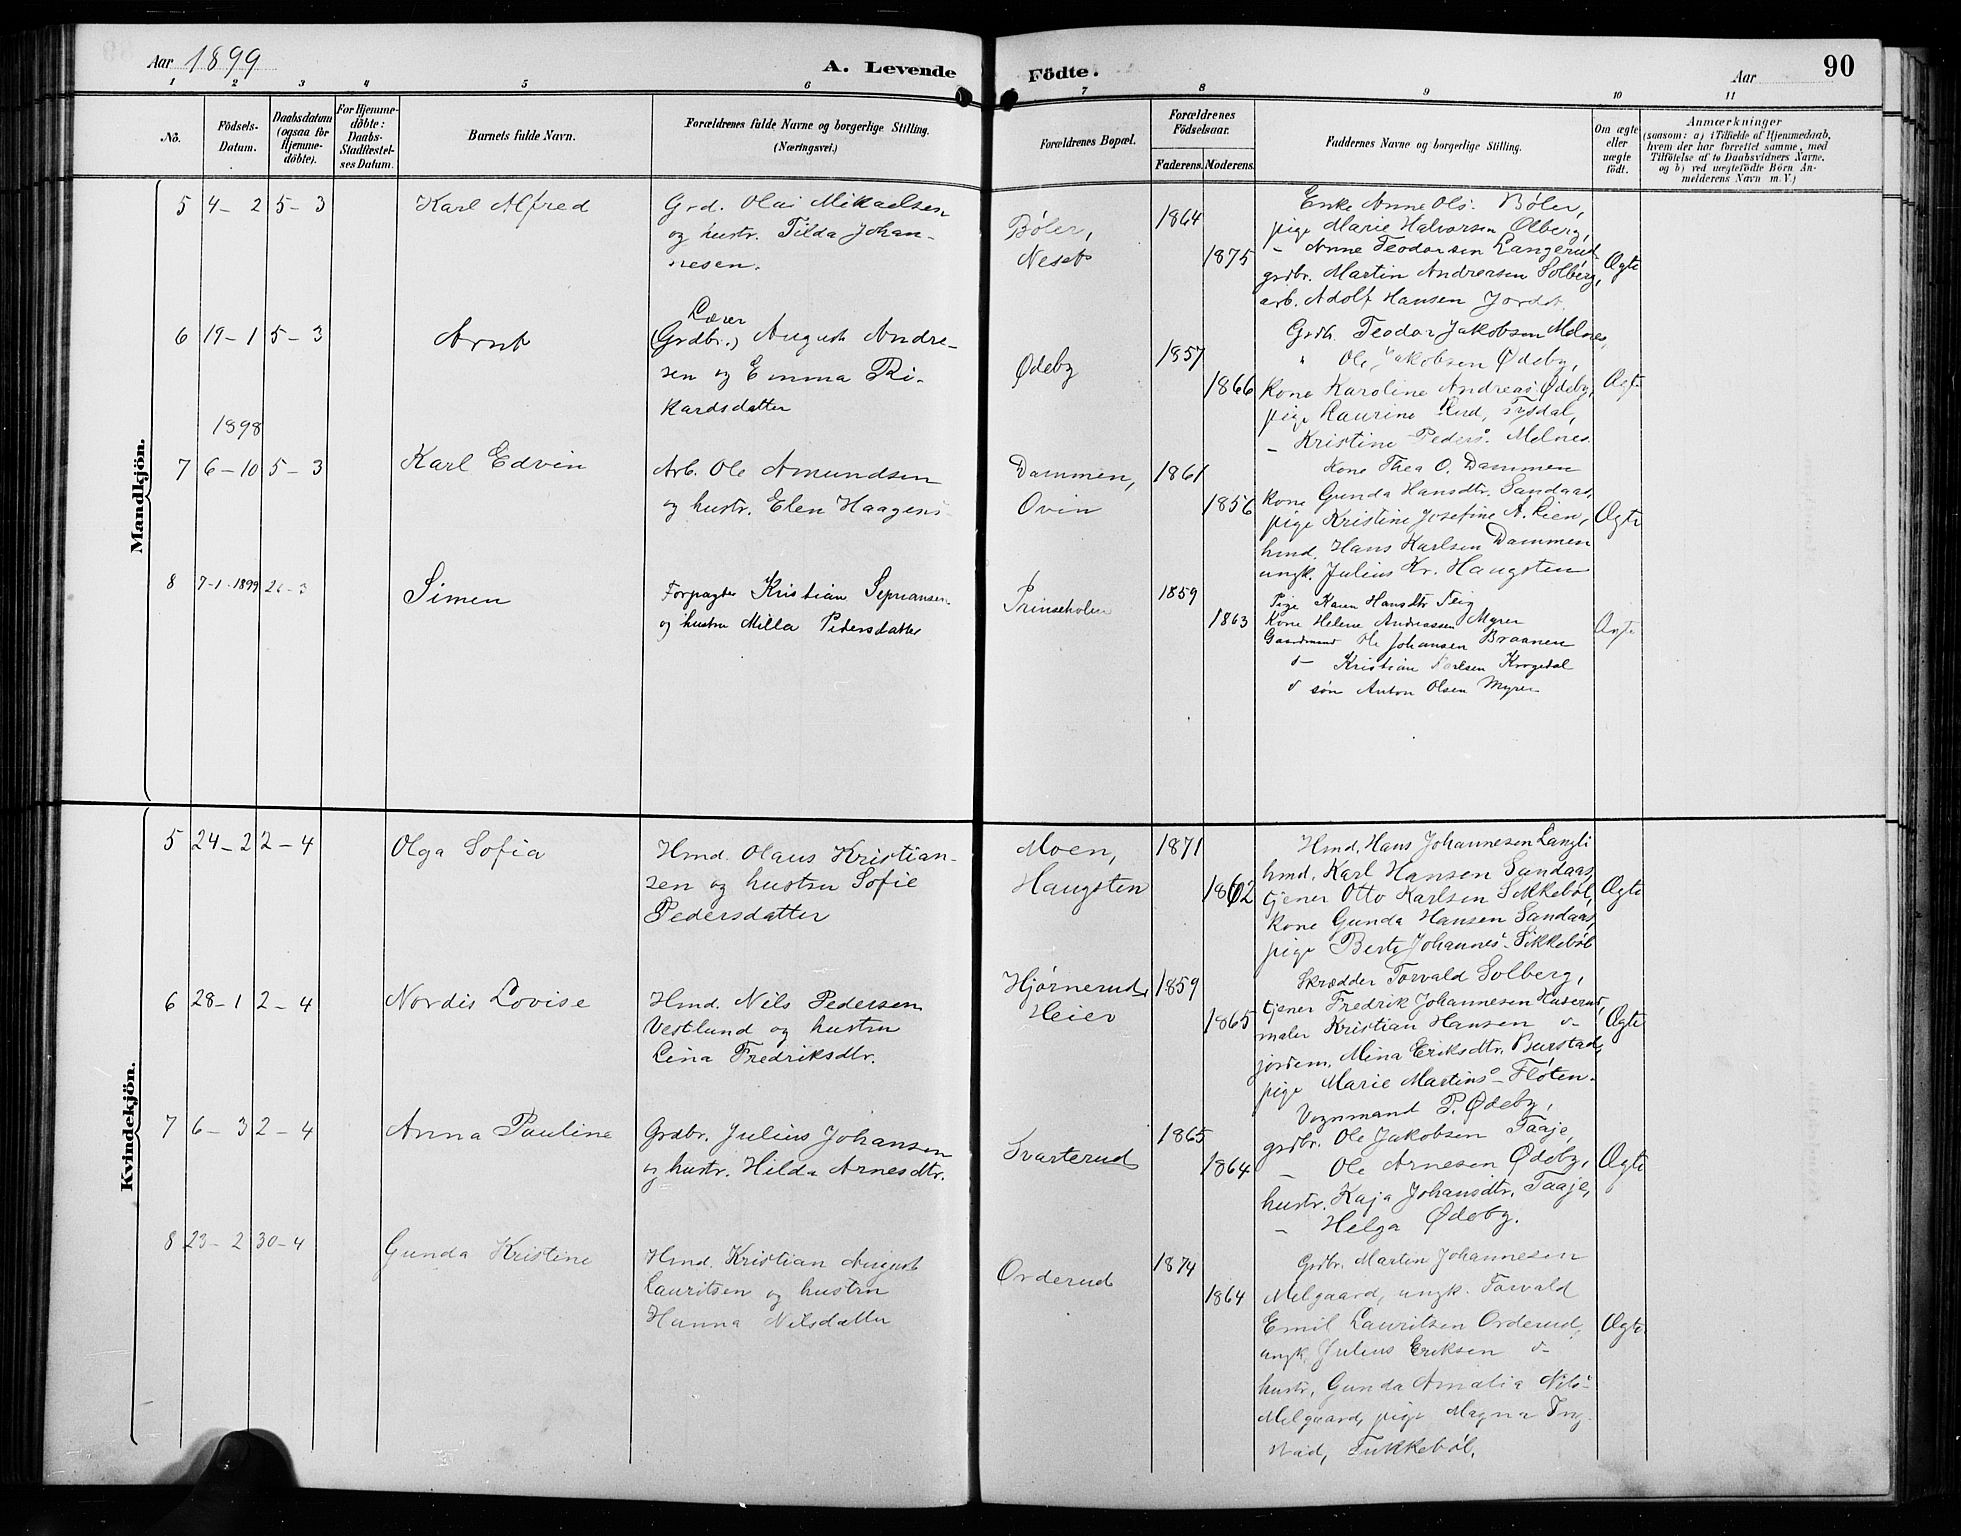 Aar 1899
A. Levende
Födte.
Aar
90
1 2 3 4 5 6 7 8 9 10 11
Nò.
Födsels-
Datum.
Daabsdatum
(ogsaa for
Hjemme-
döbte).
For Hjemme-
döbte:
Daabs-
Stadfæstel-
ses Datum.
Barnets fulde Navn.
Forældrenes fulde Navne og borgerlige Stilling.
(Næringsvei.)
Forældrenes Bopæl.
Forældrenes
Födselsaar.
Faderens. Moderens.
Faddernes Navne og borgerlige Stilling.
Om ægte
eller
uægte
födt.
Anmærkninger
(saasom: a) i Tilfælde af Hjemmedaab,
hvem der har forrettet samme, med
Tilföielse af to Daabsvidners Navne.
og b) ved uægtefödte Börn An-
melderens Navn m. V.)
Mandkjön.
5 4–2 5–3
Karl Alfred
Grd. Olai Mikaelsen
og hustr. Tilda Johan-
nesen.
Bøler,
Neset
1864
1875
Enke Anne Ols. Bøler,
pige Marie Halvorsen Olberg,
– Anne Teodorsen Langerud
grdbr. Martin Andreasen Solberg,
arb. Adolf Hansen Jordet
Ægte
6 19–1 5–3
Arnt
Lærer
(Grdbr.) August Andre-
sen og Emma Ri-
kardsdatter
Ødeby
1857
1866
Grdb. Teodor Jakobsen Melnes,
" Ole Jakobsen Ødeby,
kone Karoline Andreas. Ødeby,
pige Laurine Rud,
– Kristine Peders. Melnes.
Ægte
1898
7 6–10 5–3
Karl Edvin
Arb. Ole Amundsen
og hustr. Elen Haagens
Dammen,
Ovin
1861
1856
Kone Thea O. Dammen
kone Gunda Hansdtr. Sandaas,
pige Kristine Josefine A. Lien,
hmd. Hans Karlsen Dammen
ungk. Julius Kr. Haugsten
Ægte
8 7–1–1899 26–3
Simen
Forpagter Kristian Sepriansen
og hustru Milla Pedersdatter
Prinseholm
1859
1863
Pige Karen Hansdtr Teig
Kone Helene Andreassen Myrer
Gaardmand Ole Johansen Braanen
d– Kristian Karlsen Krogedal
d søn Anton Olsen Myrer
Ægte
Kvindekjön.
5 24–2 2–4
Olga Sofia
Hmd. Olaus Kristian-
sen og hustru Sofie
Pedersdatter
Moen,
Haugsten
1871
1862
Hmd. Hans Johannesen Langli
hmd. Karl Hansen Sandaas,
tjener Otto Karlsen Sikkebøl,
kone Gunda Hansen Sandaas,
pige Berte Johannes- Sikkebøl
Ægte
6 28–1 2–4
Nordis Lovise
Hmd. Nils Pedersen
Vestlund og hustru
Lina Fredriksdtr.
Hjørnerud,
Heier
1859
1865
Skrædder Torvald Solberg,
tjener Fredrik Johannesen Huserud,
maler Kristian Hansen d–
jordem. Mina Eriksdtr. Burstad,
pige Marie Martins– Fløten.
Ægte
7 6–3 2–4
Anna Pauline
Grdbr. Julius Johansen
og hustr. Hilda Arnesdtr.
Svarterud
1865
1864
Vognmand P. Ødeby,
grdbr. Ole Jakobsen Taaje,
– Ole Arnesen Ødeby,
hustr. Kaja Johansdtr. Taaje,
– Helga Ødeby.
Ægte
8 23–2 30–4
Gunda Kristine
Hmd. Kristian August
Lauritsen og hustru
Hanna Nilsdatter
Orderud
1874
1864
Grdbr. Martin Johannesen
Melgaard, ungk. Torvald
Emil Lauritsen Orderud,
ungk. Julius Eriksen d–
hustr. Gunda Amalia Nils-
Melgaard, pige Magna Tny-
stad, Tukkebøl.
Ægte